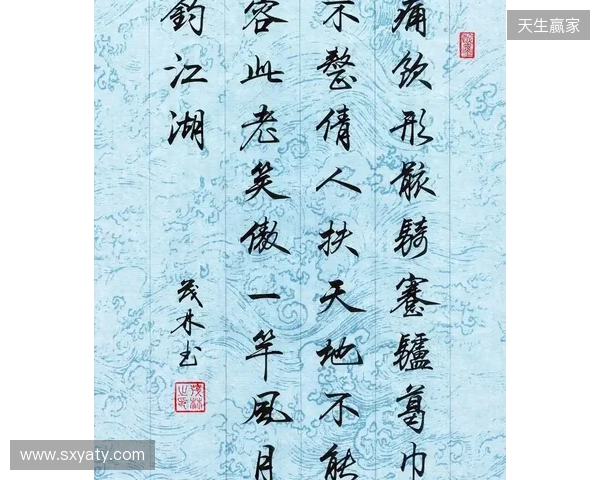 痛飲形骸騎蹇驢葛巾
不整倩人扶天地不能
容此老笑傲一竿風月
釣江湖
茂林书
天生赢家
www.sxyaty.com